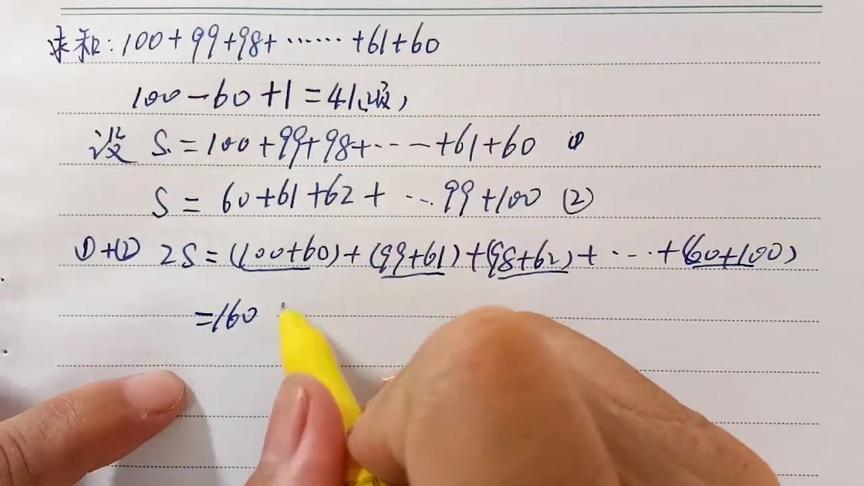 求和:100+99+98+……+61+60
100-60+1=41项,
设 S=100+99+98+…+61+60 ①
S=60+61+62+…99+100 ②
①+② 2S=(100+60)+(99+61)+(98+62)+…+(60+100)
=160